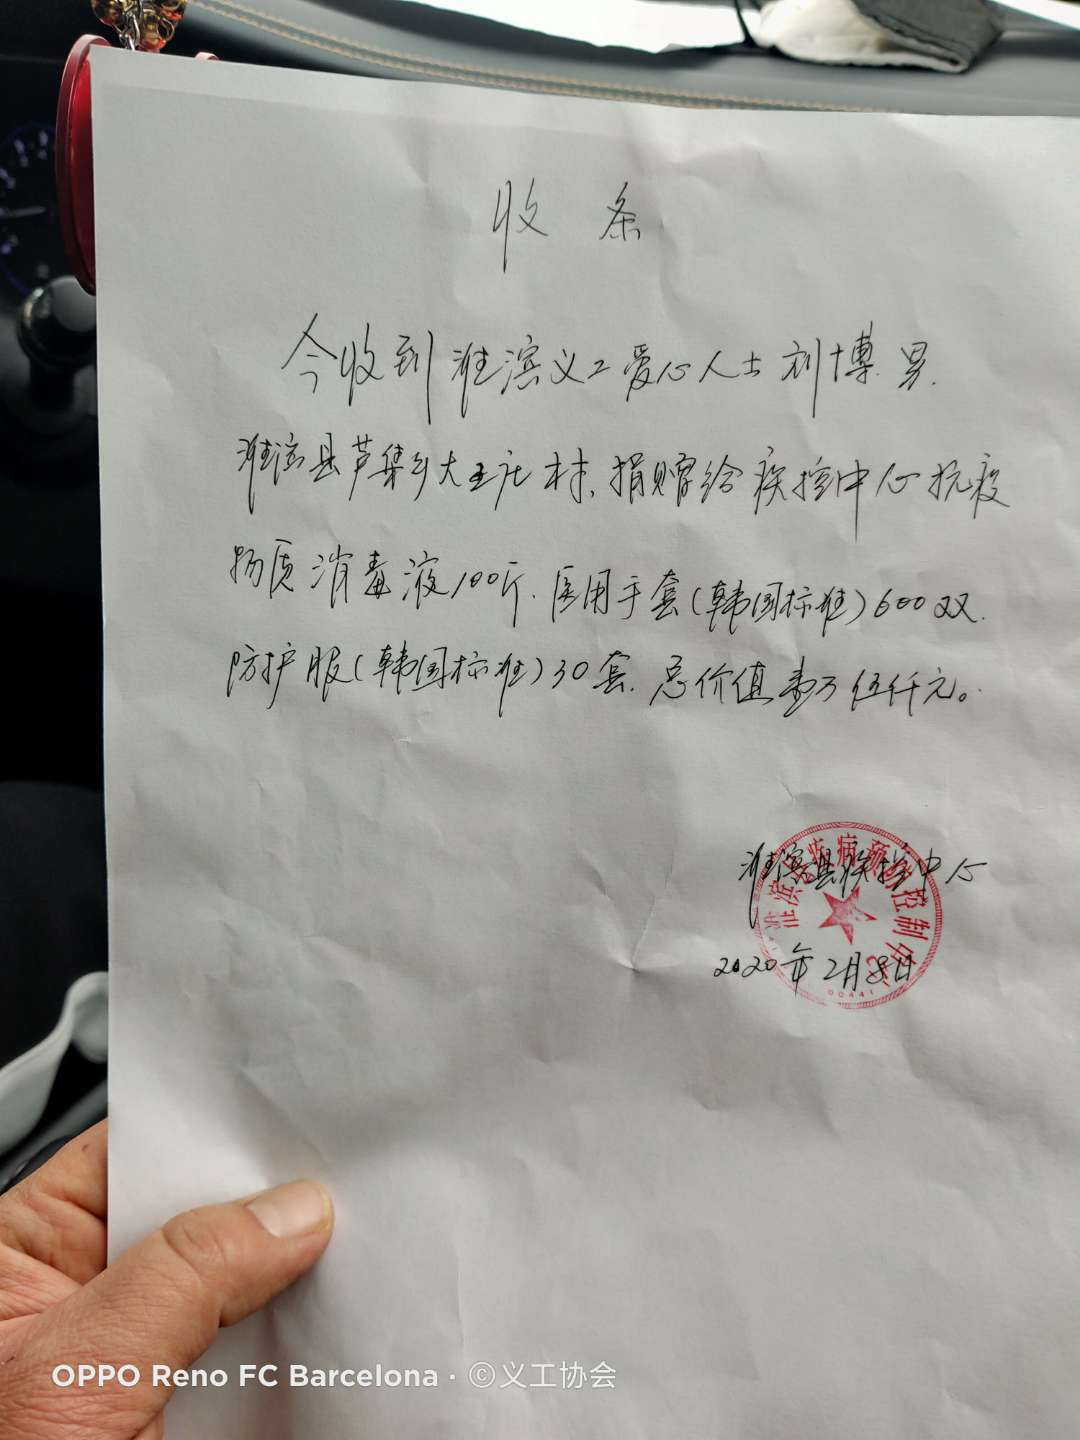 收条
今收到淮滨义工爱心人士刘博.男.
淮滨县芦集乡大王庄村、捐赠给疾控中心抗疫
物质消毒液100斤.医用手套(韩国标准)600双.
防护服(韩国标准)30套.总价值壹万伍仟元。
淮滨县疾控中心
2020年2月8日
淮滨县疾病预防控制中心
00441
OPPO Reno FC Barcelona · ©义工协会